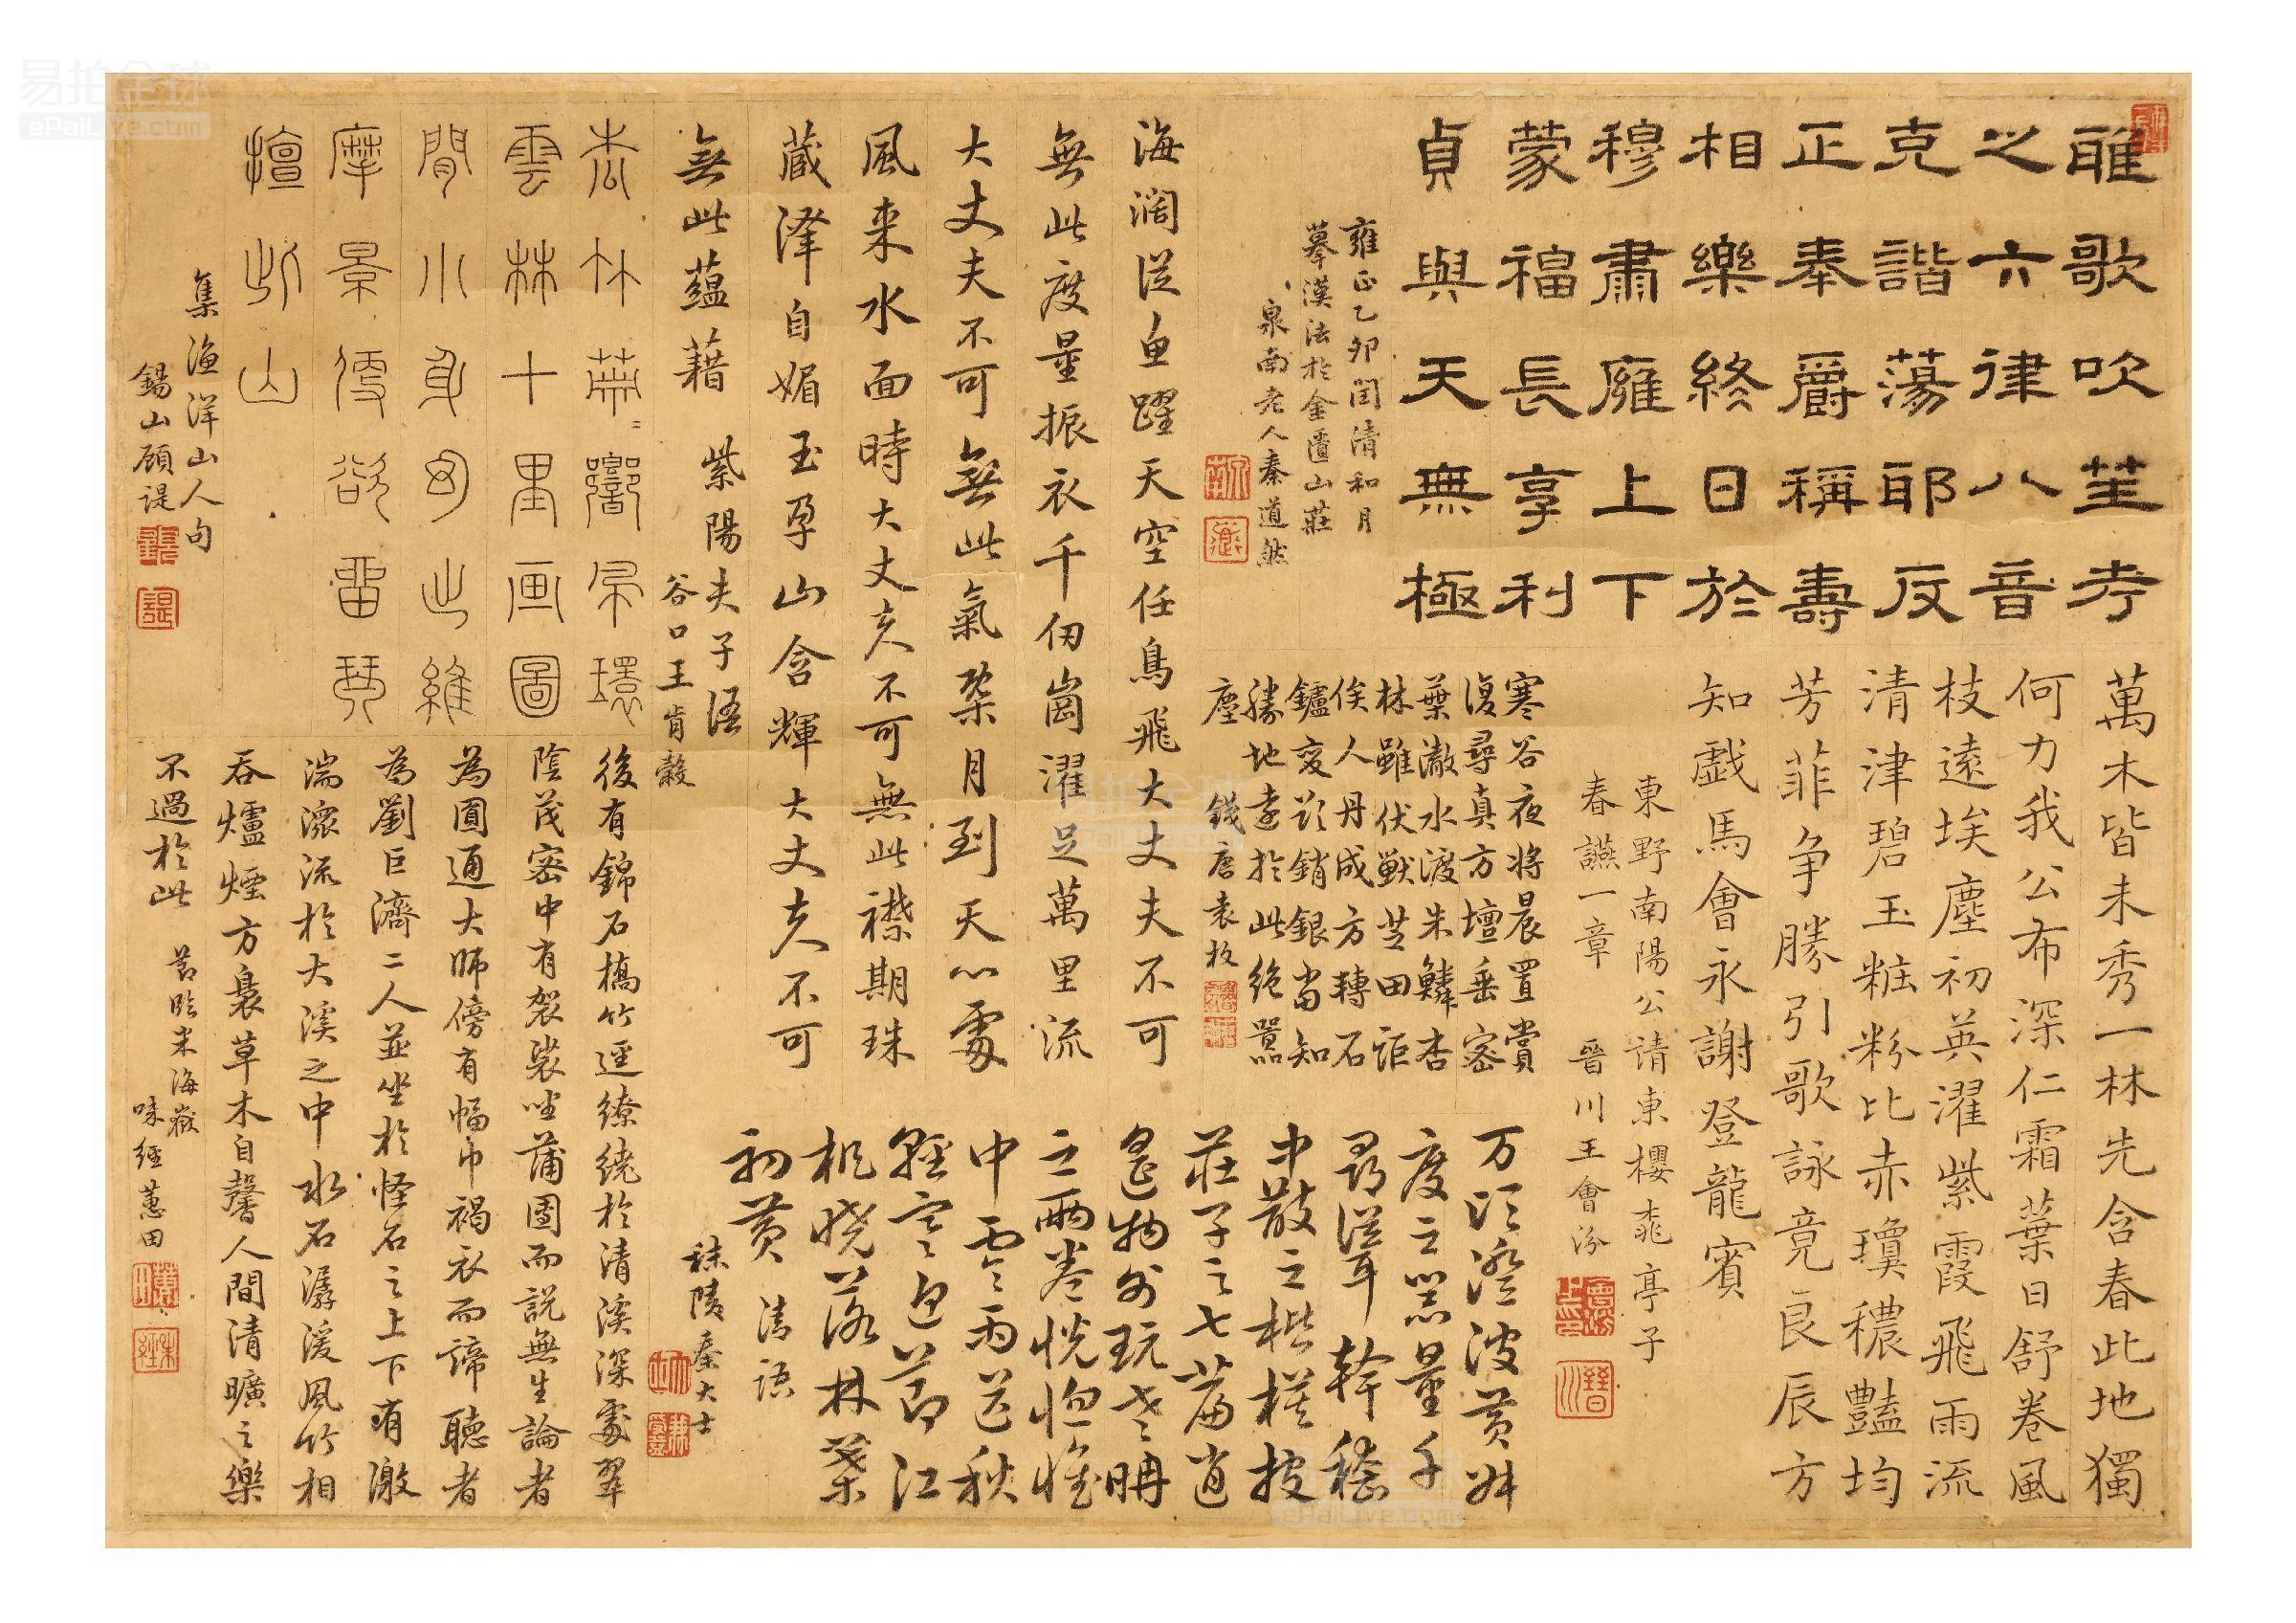 雎歌吹笙考
之六律八音
克諧蕩耶反
正奉爵稱壽
相樂終日於
穆肅雍上下
蒙福長享利
貞與天無極
雍正乙卯閏清和月
摹漢法於金匱山莊
泉南老人秦道然
萬木皆未秀一林先含春此地獨
何力我公布深仁霜葉日舒卷風
枝遠埃塵初英濯紫霞飛雨流
清津碧玉粧粉比赤瓊穠豔均
芳菲争勝引歌詠竟良辰方
知戯馬會永謝登龍賓
東野南陽公請東櫻桃亭子
春讌一章 晉川王會汾
寒谷夜将晨置賞
復尋真方壇垂密
葉澈水渡朱鱗杏
林雖伏獸芝田詎
俟人丹成方轉石
鑪变欲銷銀當知
勝地遠於此絶囂
塵 錢唐袁枚
万頃澄波黄叔
度之器量千
尋聳幹嵇
中散之楷模披
莊子之七篇逍
遥物外玩老聃
之兩卷恍惚惟
中雲雨送秋
輕寒迎節江
楓曉落林葉
初黄 清語
秣陵秦大士
海濶從魚躍天空任鳥飛大丈夫不可
無此度量振衣千仞崗濯足萬里流
大丈夫不可無此氣槩月到天心處
風来水面時大丈夫不可無此襟期珠
藏澤自媚玉孕山含輝大丈夫不可
無此蘊藉 紫陽夫子語
谷口王肯穀
赤林葉響帚環
雲林十里画圖
閒小身西出維
摩景優欲留琴
擅此山
集漁洋山人句
錫山顧諟
後有錦石橋竹逕繚繞於清溪深處翠
陰茂密中有袈裟坐蒲團而說無生論者
為圓通大師傍有幅巾褐衣而諦聽者
為劉巨濟二人並坐於怪石之上下有激
湍潨流於大溪之中水石潺湲風竹相
吞爐煙方裊草木自馨人間清曠之樂
不過於此 節臨米海嶽
味經蕙田